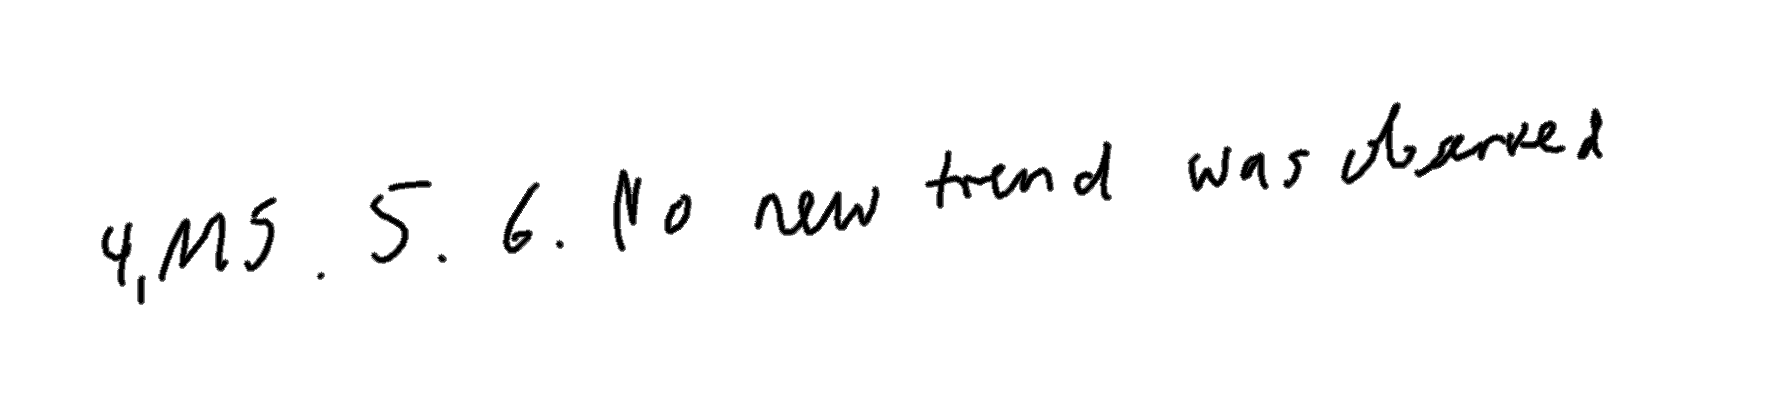 4, MS. 5. 6. No new trend was observed